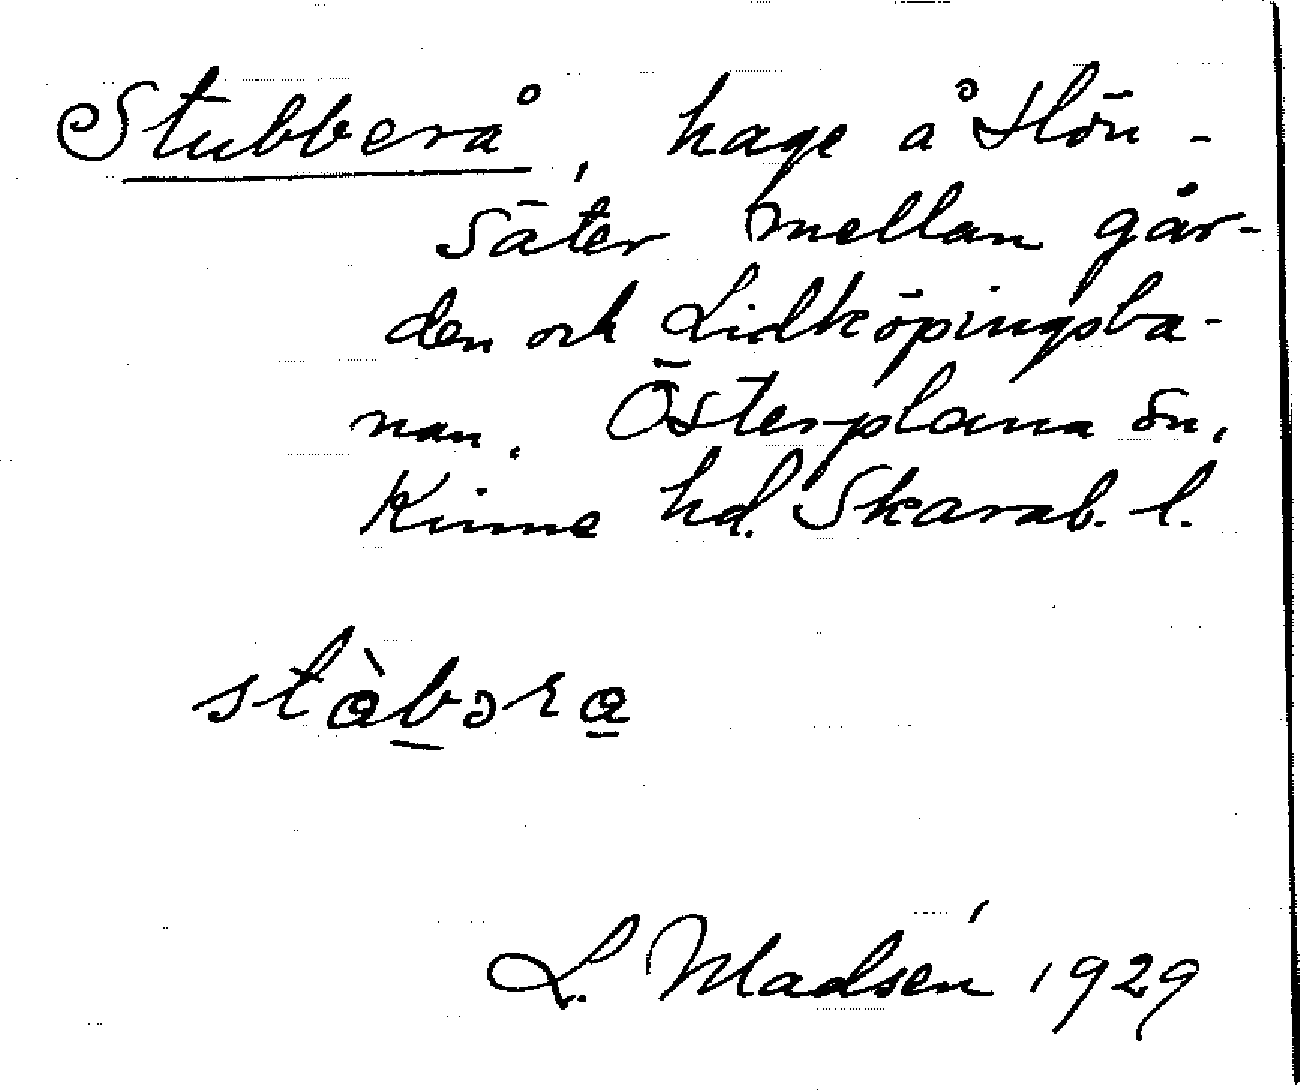 Stubberå, hage å Hön-
säter mellan går-
den och Lidköpingsba-
nan. Österplana sn,
Kinne hd. Skarab. l.
stàb̲əra̲
L. Madsén 1929